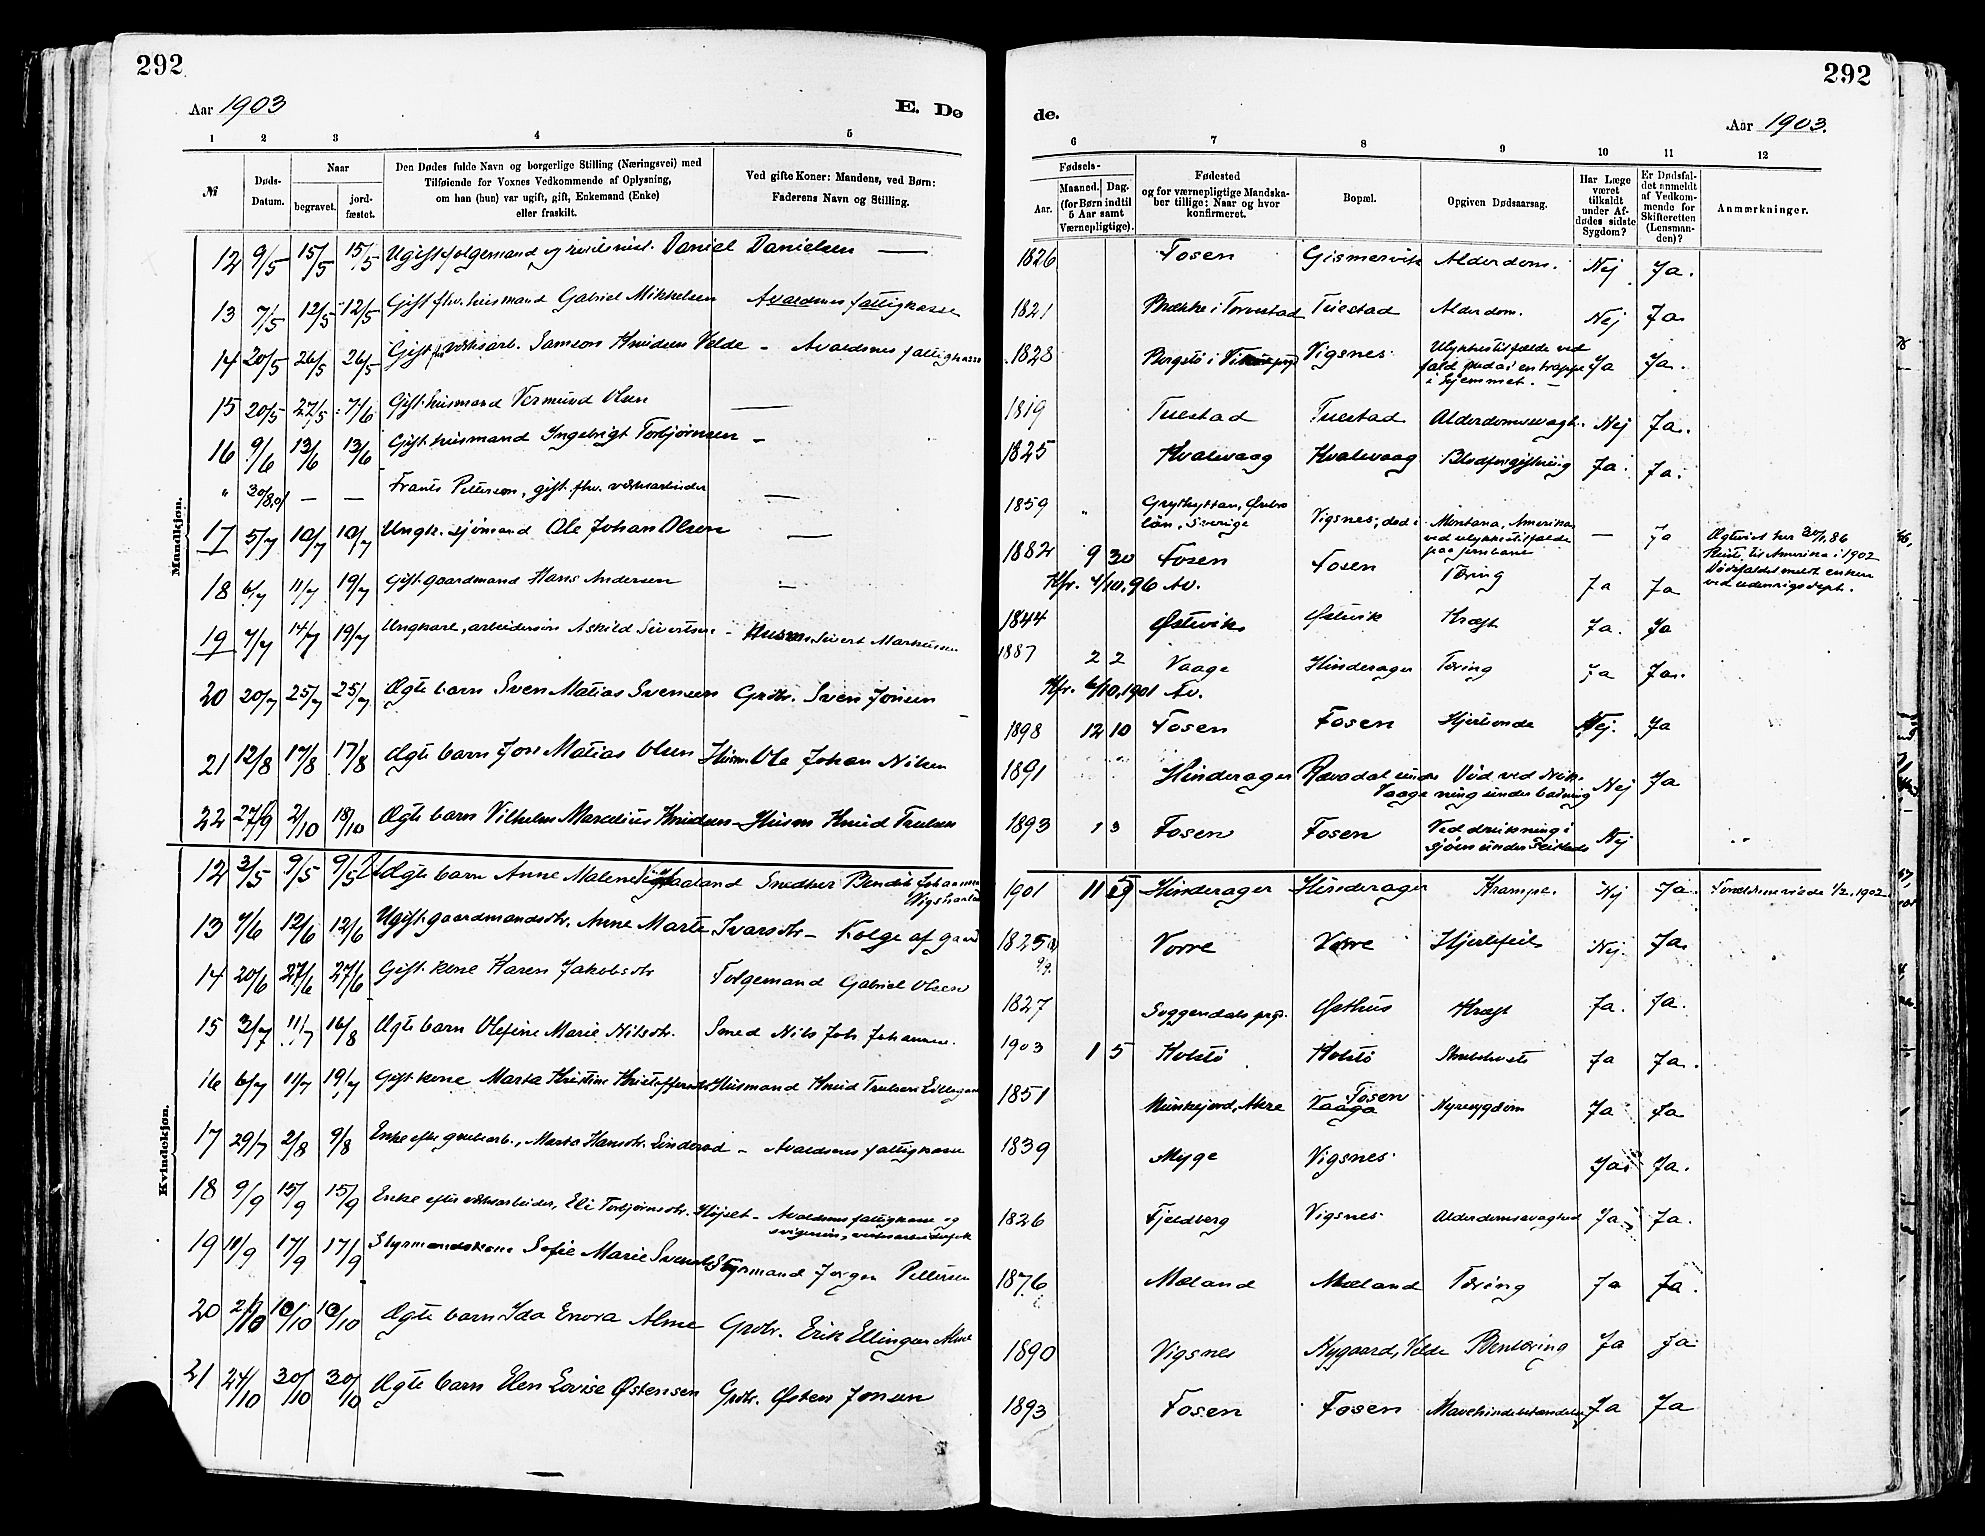 292
Aar 1903
E. Dø
1 2 3 4 5
№ Døds-Datum. Naar begravet. jord-fæstet. Den Dødes fulde Navn og borgerlige Stilling (Næringsvei) med Tilføiende for Voxnes Vedkommende af Oplysning, om han (hun) var ugift, gift, Enkemand (Enke) eller fraskilt. Ved gifte Koner: Mandens, ved Børn: Faderens Navn og Stilling.
Mandkjøn.
12 9/5 15/5 15/5 Ugift folgemand Daniel Danielsen —
13 7/5 12/5 12/5 Gift fhv. husmand Gabriel Mikkelsen Avaldsnes fattigkasse
14 20/5 26/5 26/5 Gift fhv verksarb. Samson Knudsen Velde – Avaldsnes fattigkasse
15 20/5 27/5 7/6 Gift husmand Vermund Olsen —
16 9/6 13/6 13/6 Gift husmand Ingebrigt Torbjørnsen –
" 30/8.01 — — Frants Pettersen, gift fhv. verksarbeider —
17 5/7 10/7 10/7 Ungk. sjømand Ole Johan Olsen —
18 6/7 11/7 19/7 Gift gaardmand Hans Andersen —
19 7/7 14/7 19/7 Ungkarl, arbeidersøn Askild Sivertsen – Husm. Sivert Markussen
20 20/7 25/7 25/7 Ægte barn Sven Matias Svensen Grdbr. Sven Jonsen
21 12/8 17/8 17/8 Ægte barn Jon Matias Olsen Husm Ole Johan Nilsen
22 27/9 2/10 18/10 Ægte barn Vilhelm Marselius Knudsen – Husm Knud Trulsen
Kvindekjøn.
12 3/5 9/5 9/5 Ægte barn Anne Malene Vigshaaland Snedker Bendik Johannsen Vigshaaland
13 7/6 12/6 12/6 Ugift gaardmandsdtr. Anne Marte Ivarsdtr – Folge af gaard
14 20/6 27/6 27/6 Gift kone Karen Jakobsdtr Folgemand Gabriel Olsen
15 3/7 11/7 16/8 Ægte barn Olefine Marie Nilsdtr. Smed Nils Joh. Johannsen.
16 6/7 11/7 19/7 Gift kone Marta Kristine Kristoffersdtr Husmand Knud Trulsen
17 29/7 2/8 9/8 Enke efter grubearb., Marta Hansdtr. – Avaldsnes fattigkasse
18 9/9 15/9 15/9 Enke efter verksarbeider, Eli Torbjørnsdtr. – Avaldsnes fattigkasse og
19 11/9 17/9 17/9 Styrmandskone Sofie Marie Svendsdtr Styrmand Jørgen Pettersen
20 2/10 10/10 10/10 Ægte barn Ida Enora Alme Grdbr. Erik Ellingsen Alme
21 24/10 30/10 30/10 Ægte barn Elen Lovise Østensen Grdbr. Østen Jonsen
292
de.
Aar 1903.
6 7 8 9 10 11 12
Fødsels- Aar. Maaned. Dag. (for Børn indtil 5 Aar samt Værnepligtige). Fødested og for værnepligtige Mandskaber tillige: Naar og hvor konfirmeret. Bopæl. Opgiven Dødsaarsag. Har Læge været tilkaldt under Afdødes sidste Sygdom? Er Dødsfaldet anmeldt af Vedkommende for Skifteretten (Lensmanden)? Anmærkninger.
1826 Fosen Gismervik Alderdom. Nej Ja.
1821 Brekke i Torvestad Tuestad Alderdom. Nej Ja.
1828 Bergstø i Vigsnes Ulykkestilfælde ved fald i en trappe i hjemmet. – Ja Ja.
1819 Tuestad Tuestad Alderdomssvagh. Nej Ja.
1825 Kvalevaag Kvalevaag Blodforgiftning Ja. Ja.
1859 " Grythyttan, Ørebro län, Sverige Vigsnes; død i Montana, Amerika ved ulykkestilfælde paa jernbane — Ja Ægteviet her 30/1.86 Reiste til Amerika i 1902 Dødsfaldet meldt enken ved udenrigsdept.
1882 9 30 Fosen Fosen Tæring Ja Ja
Kfr. 4/10.96 Av.
1844 Østevik Østevik Kræft Ja. Ja
1887 2 2 Vaage Hinderager Tæring Ja Ja.
Kfr. 6/10.1901 Av.
1898 12 10 Fosen Fosen Hjertonde Nej. Ja
1891 Hinderager Død ved drukning under badning Nej Ja
1893 1 3 Fosen Fosen Ved drukning i sjøen under Nej
1901 11 19 Hinderager Hinderager Krampe. Nej Ja. 1/2.1902
1825 Vorre Vorre Hjertefeil Nej. Ja.
1827 Soggendals prgj. Østhus Kræft Ja. Ja.
1903 1 5 Kolstø Kolstø Ja Ja.
1851 Munkejord, Akre Vaage Fosen Nyresygdom Ja Ja
1839 Myge Vigsnes Ja. Ja.
1826 Fjeldberg Vigsnes Alderdomssvaghed Ja. Ja.
1876 Mæland Mæland Tæring Ja Ja.
1890 Vigsnes Nygaard, Velde Bentæring Ja Ja
1893 Fosen Fosen Mavehindebetændelse Ja Ja